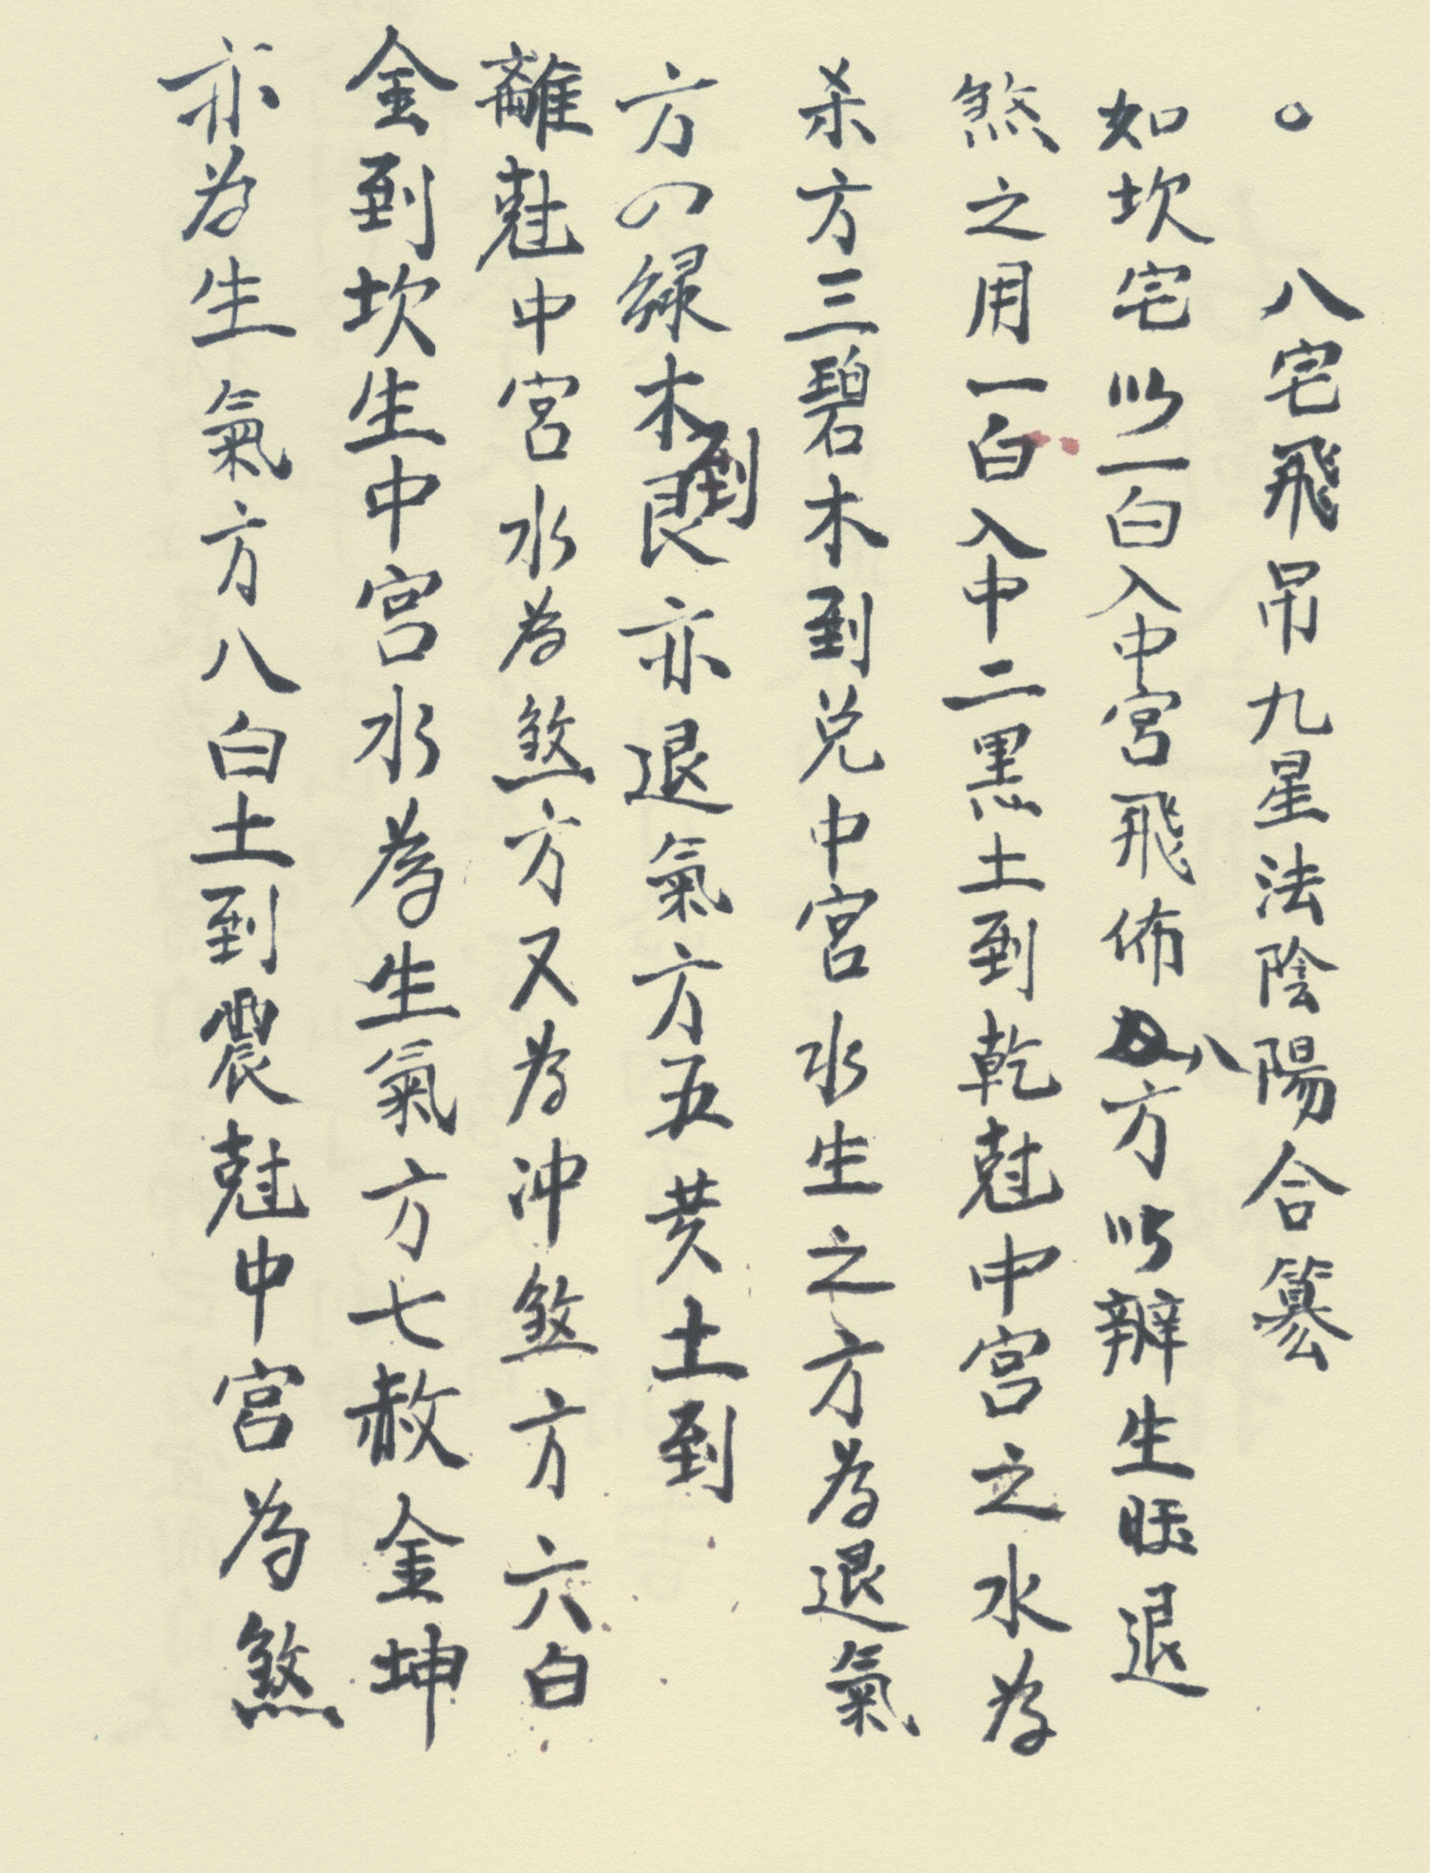 。八宅飛吊九星法陰陽合纂
如坎宅以一白入中宮飛佈八方以辨生旺退
煞之用一白入中二黑土到乾尅中宮之水為
杀方三碧木到兑中宮水生之方為退氣
方四綠木到艮亦退氣方五黄土到
離尅中宮水為煞方又為沖煞方六白
金到坎生中宮水為生氣方七赦金坤
亦為生氣方八白土到震尅中宮為煞